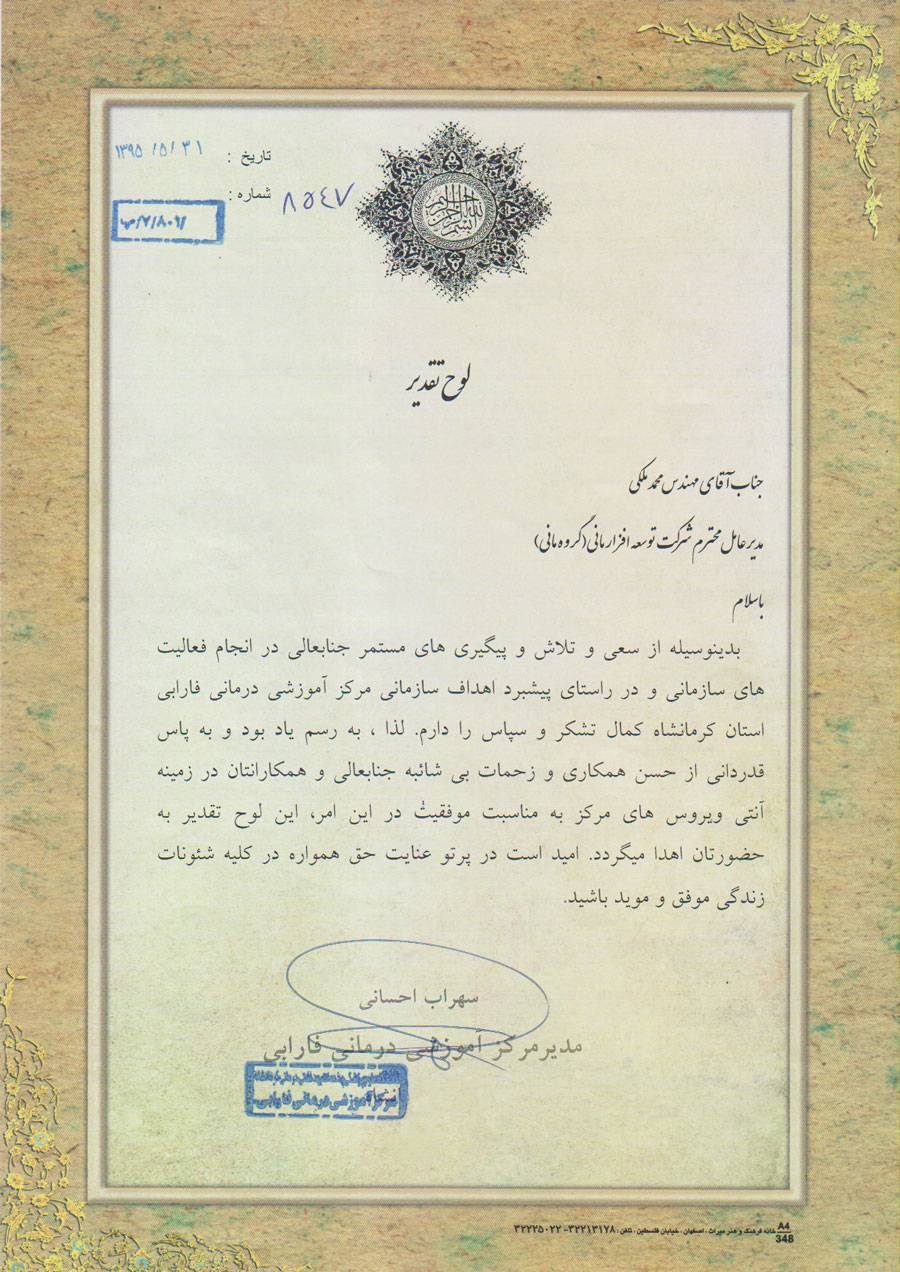 بسم الله الرحمن الرحیم
تاریخ : ۱۳۹۵ / ۵ / ۳۱
شماره : ۸۵۴۷
لوح تقدیر
جناب آقای مهندس محمد ملکی
مدیر عامل محترم شرکت توسعه افزار مانی (گروه مانی)
باسلام
بدینوسیله از سعی و تلاش و پیگیری های مستمر جنابعالی در انجام فعالیت
های سازمانی و در راستای پیشبرد اهداف سازمانی مرکز آموزشی درمانی فارابی
استان کرمانشاه کمال تشکر و سپاس را دارم. لذا ، به رسم یاد بود و به پاس
قدردانی از حسن همکاری و زحمات بی شائبه جنابعالی و همکارانتان در زمینه
آنتی ویروس های مرکز به مناسبت موفقیت در این امر، این لوح تقدیر به
حضورتان اهدا میگردد. امید است در پرتو عنایت حق همواره در کلیه شئونات
زندگی موفق و موید باشید.
سهراب احسانی
مدیرمرکز آموزشی درمانی فارابی
مرکز آموزشی درمانی فارابی
A4
348
خانه فرهنگ و هنر میراث ، اصفهان ، خیابان فلسطین ، تلفن : ۳۲۲۱۳۱۷۸ - ۳۲۲۲۵۰۲۲